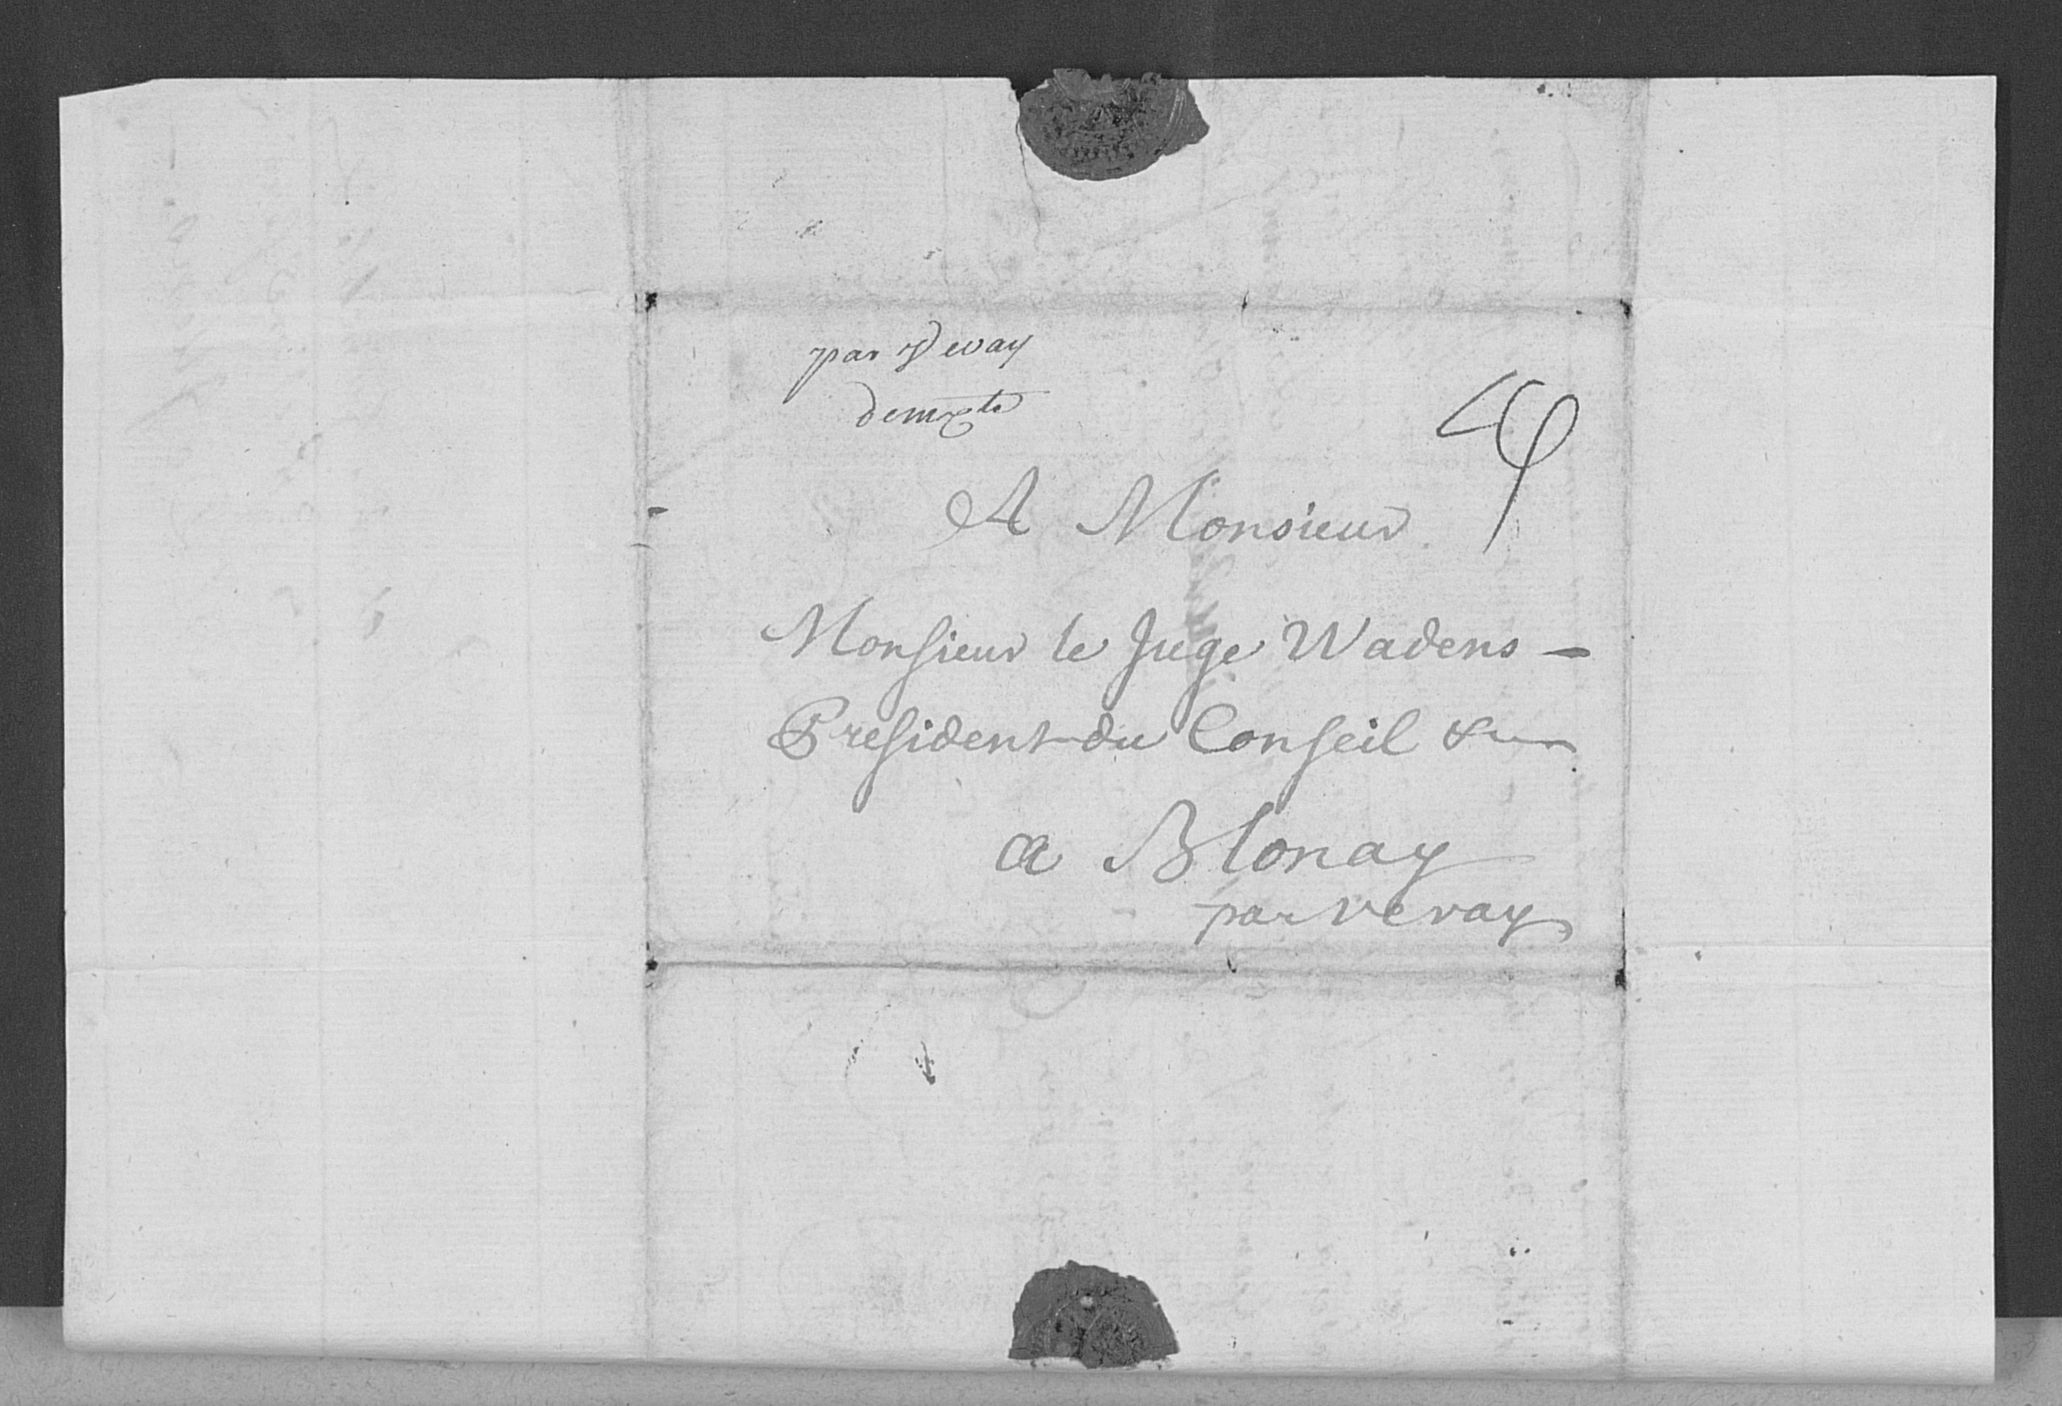 par Vevay
A Monsieur
Monsieur le Juge Wadens –
President du Conseil &
a Blonay
par vevay